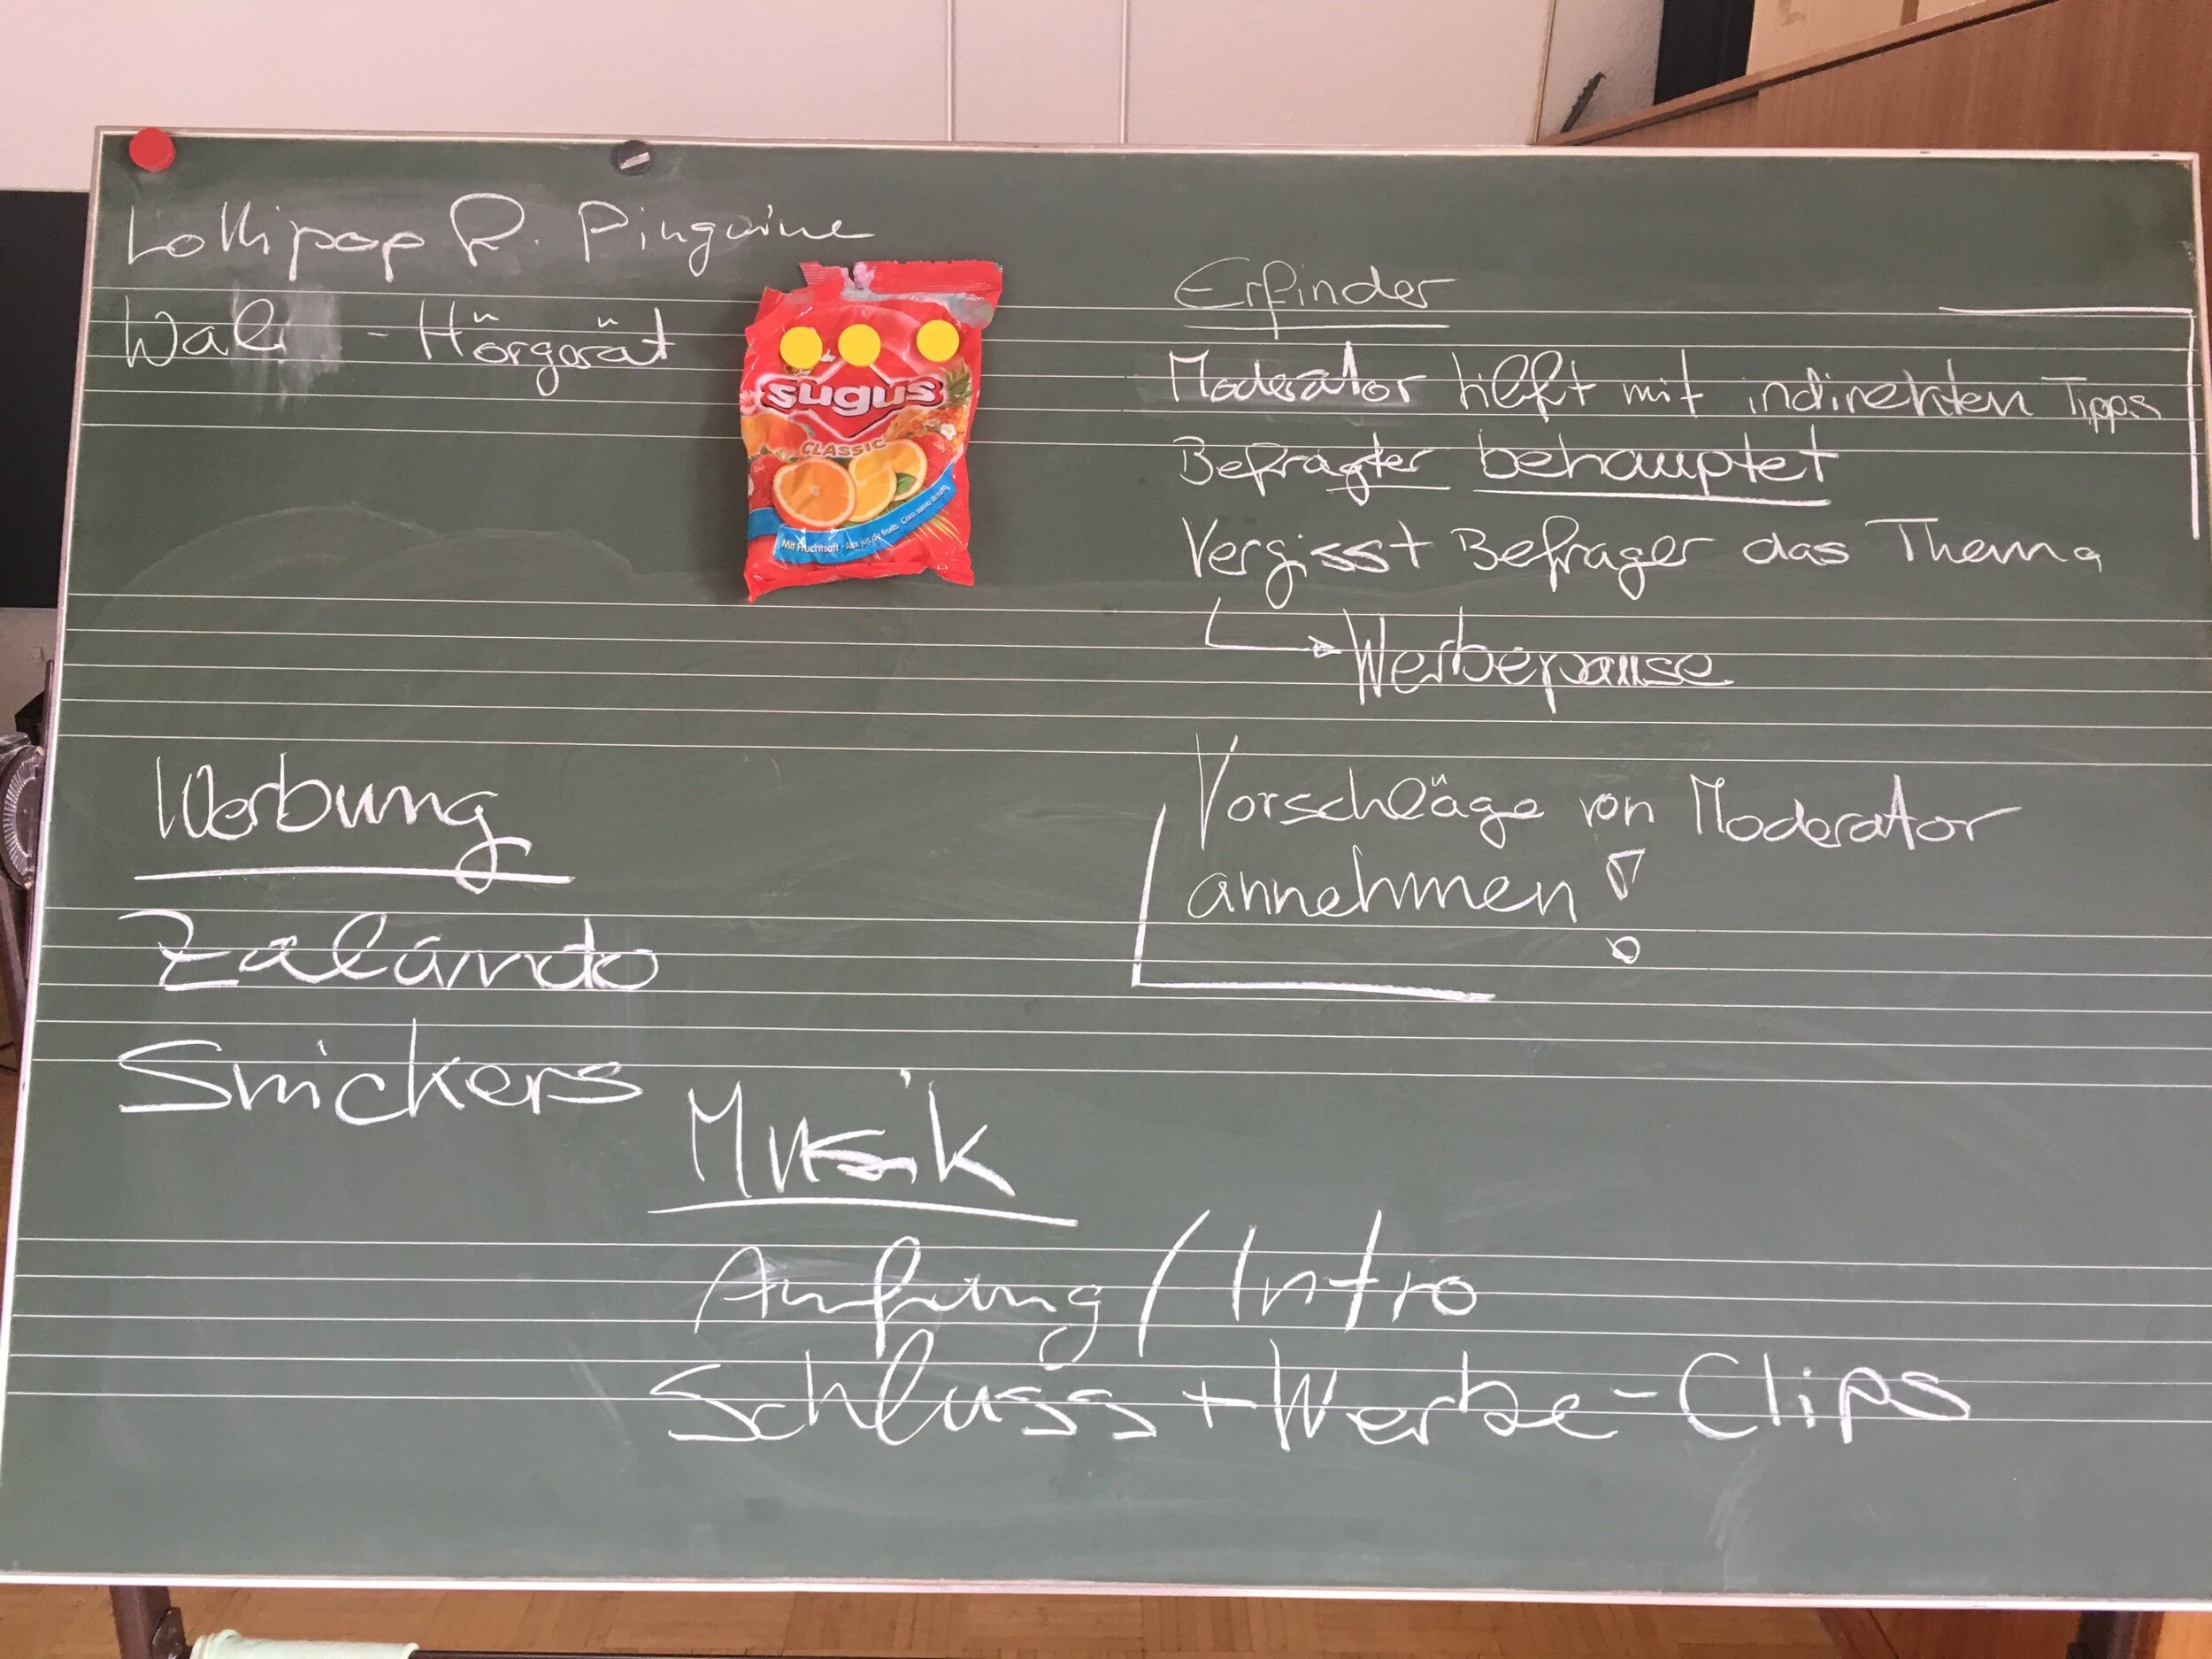 Lollipop R. Pinguine
Wal - Hörgerät
sugus
CLASSIC
Mit Fruchtsaft - Aux jus de fruits - Com sumo de fruta
Erfinder
Moderator hilft mit indirekten Tipps
Befragter behauptet
Vergisst Befrager das Thema
Werbepause
Vorschläge von Moderator
annehmen!
Werbung
Zalando
Snickers
Musik
Anfang / Intro
Schluss + Werbe-Clips